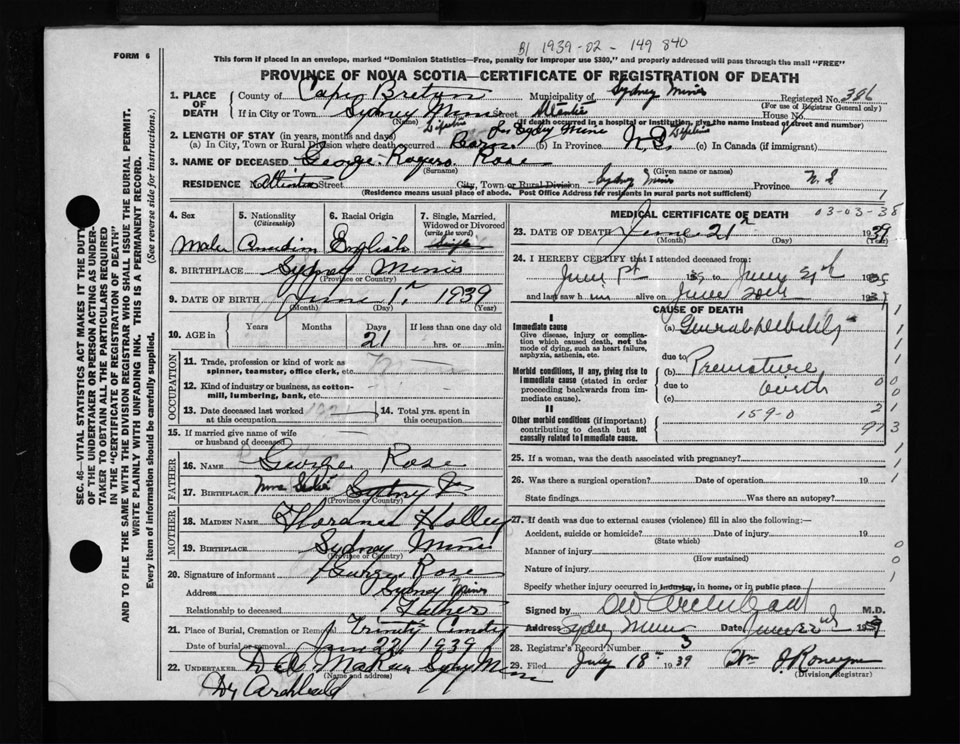 B1 1939-02 - 149 840
FORM 6
This form if placed in an envelope, marked "Dominion Statistics—Free, penalty for improper use $300," and properly addressed will pass through the mail "FREE"
PROVINCE OF NOVA SCOTIA—CERTIFICATE OF REGISTRATION OF DEATH
1. PLACE OF DEATH
County of Cape Breton Municipality of Sydney Mines Registered No. 386
(For use of Registrar General only)
If in City or Town Sydney Mines Street House No.
(Name) (If death occurred in a hospital or institution, give the name instead of street and number)
2. LENGTH OF STAY (in years, months and days)
(a) In City, Town or Rural Division where death occurred (b) In Province N.S. (c) In Canada (if immigrant)
3. NAME OF DECEASED George Rogers Rose
(Surname) (Given name or names)
RESIDENCE N Street City, Town or Rural Division Sydney Mines Province N. S
(Residence means usual place of abode. Post Office Address for residents in rural parts not sufficient)
4. Sex
5. Nationality (Citizenship)
6. Racial Origin
7. Single, Married, Widowed or Divorced (write the word)
Male Canadian English Single
8. BIRTHPLACE Sydney Mines
(Province or Country)
9. DATE OF BIRTH June 1st 1939
(Month) (Day) (Year)
10. AGE in Years Months Days If less than one day old
21 hrs. or min.
OCCUPATION
11. Trade, profession or kind of work as spinner, teamster, office clerk, etc.
12. Kind of industry or business, as cotton-mill, lumbering, bank, etc.
13. Date deceased last worked at this occupation
14. Total yrs. spent in this occupation
15. If married give name of wife or husband of deceased
FATHER
16. NAME George Rose
17. BIRTHPLACE Sydney
(Province or Country)
MOTHER
18. MAIDEN NAME Holley
19. BIRTHPLACE Sydney Mines
(Province or Country)
20. Signature of informant George Rose
Address Sydney Mines
Relationship to deceased Father
21. Place of Burial, Cremation or Removal Trinity
Date of burial or removal 22 1939
22. UNDERTAKER
(Name and address)
Dr Archibald
MEDICAL CERTIFICATE OF DEATH 03-03-38
23. DATE OF DEATH June 21st 1939
(Month) (Day) (Year)
24. I HEREBY CERTIFY that I attended deceased from:
June 1st 1939 to June 21st 1939
and last saw him alive on June 20th 193
CAUSE OF DEATH
I
Immediate cause
Give disease, injury or complication which caused death, not the mode of dying, such as heart failure, asphyxia, asthenia, etc.
(a) General debility
due to
Morbid conditions, if any, giving rise to immediate cause (stated in order proceeding backwards from immediate cause).
(b) Premature birth
due to
(c)
II
Other morbid conditions (if important) contributing to death but not causally related to immediate cause.
159-0
25. If a woman, was the death associated with pregnancy?
26. Was there a surgical operation? Date of operation 19
State findings Was there an autopsy?
27. If death was due to external causes (violence) fill in also the following:—
Accident, suicide or homicide? Date of injury 19
(State which)
Manner of injury
(How sustained)
Nature of injury
Specify whether injury occurred in industry, in home, or in public place
Signed by Archibald M.D.
Address Sydney Mines Date June 22nd 1939
28. Registrar's Record Number 3
29. Filed July 18th 1939
(Division Registrar)
SEC. 46—VITAL STATISTICS ACT MAKES IT THE DUTY OF THE UNDERTAKER OR PERSON ACTING AS UNDERTAKER TO OBTAIN ALL THE PARTICULARS REQUIRED IN THE "CERTIFICATE OF REGISTRATION OF DEATH"
AND TO FILE THE SAME WITH THE DIVISION REGISTRAR WHO SHALL ISSUE THE BURIAL PERMIT.
WRITE PLAINLY WITH UNFADING INK. THIS IS A PERMANENT RECORD.
Every item of information should be carefully supplied. (See reverse side for instructions.)